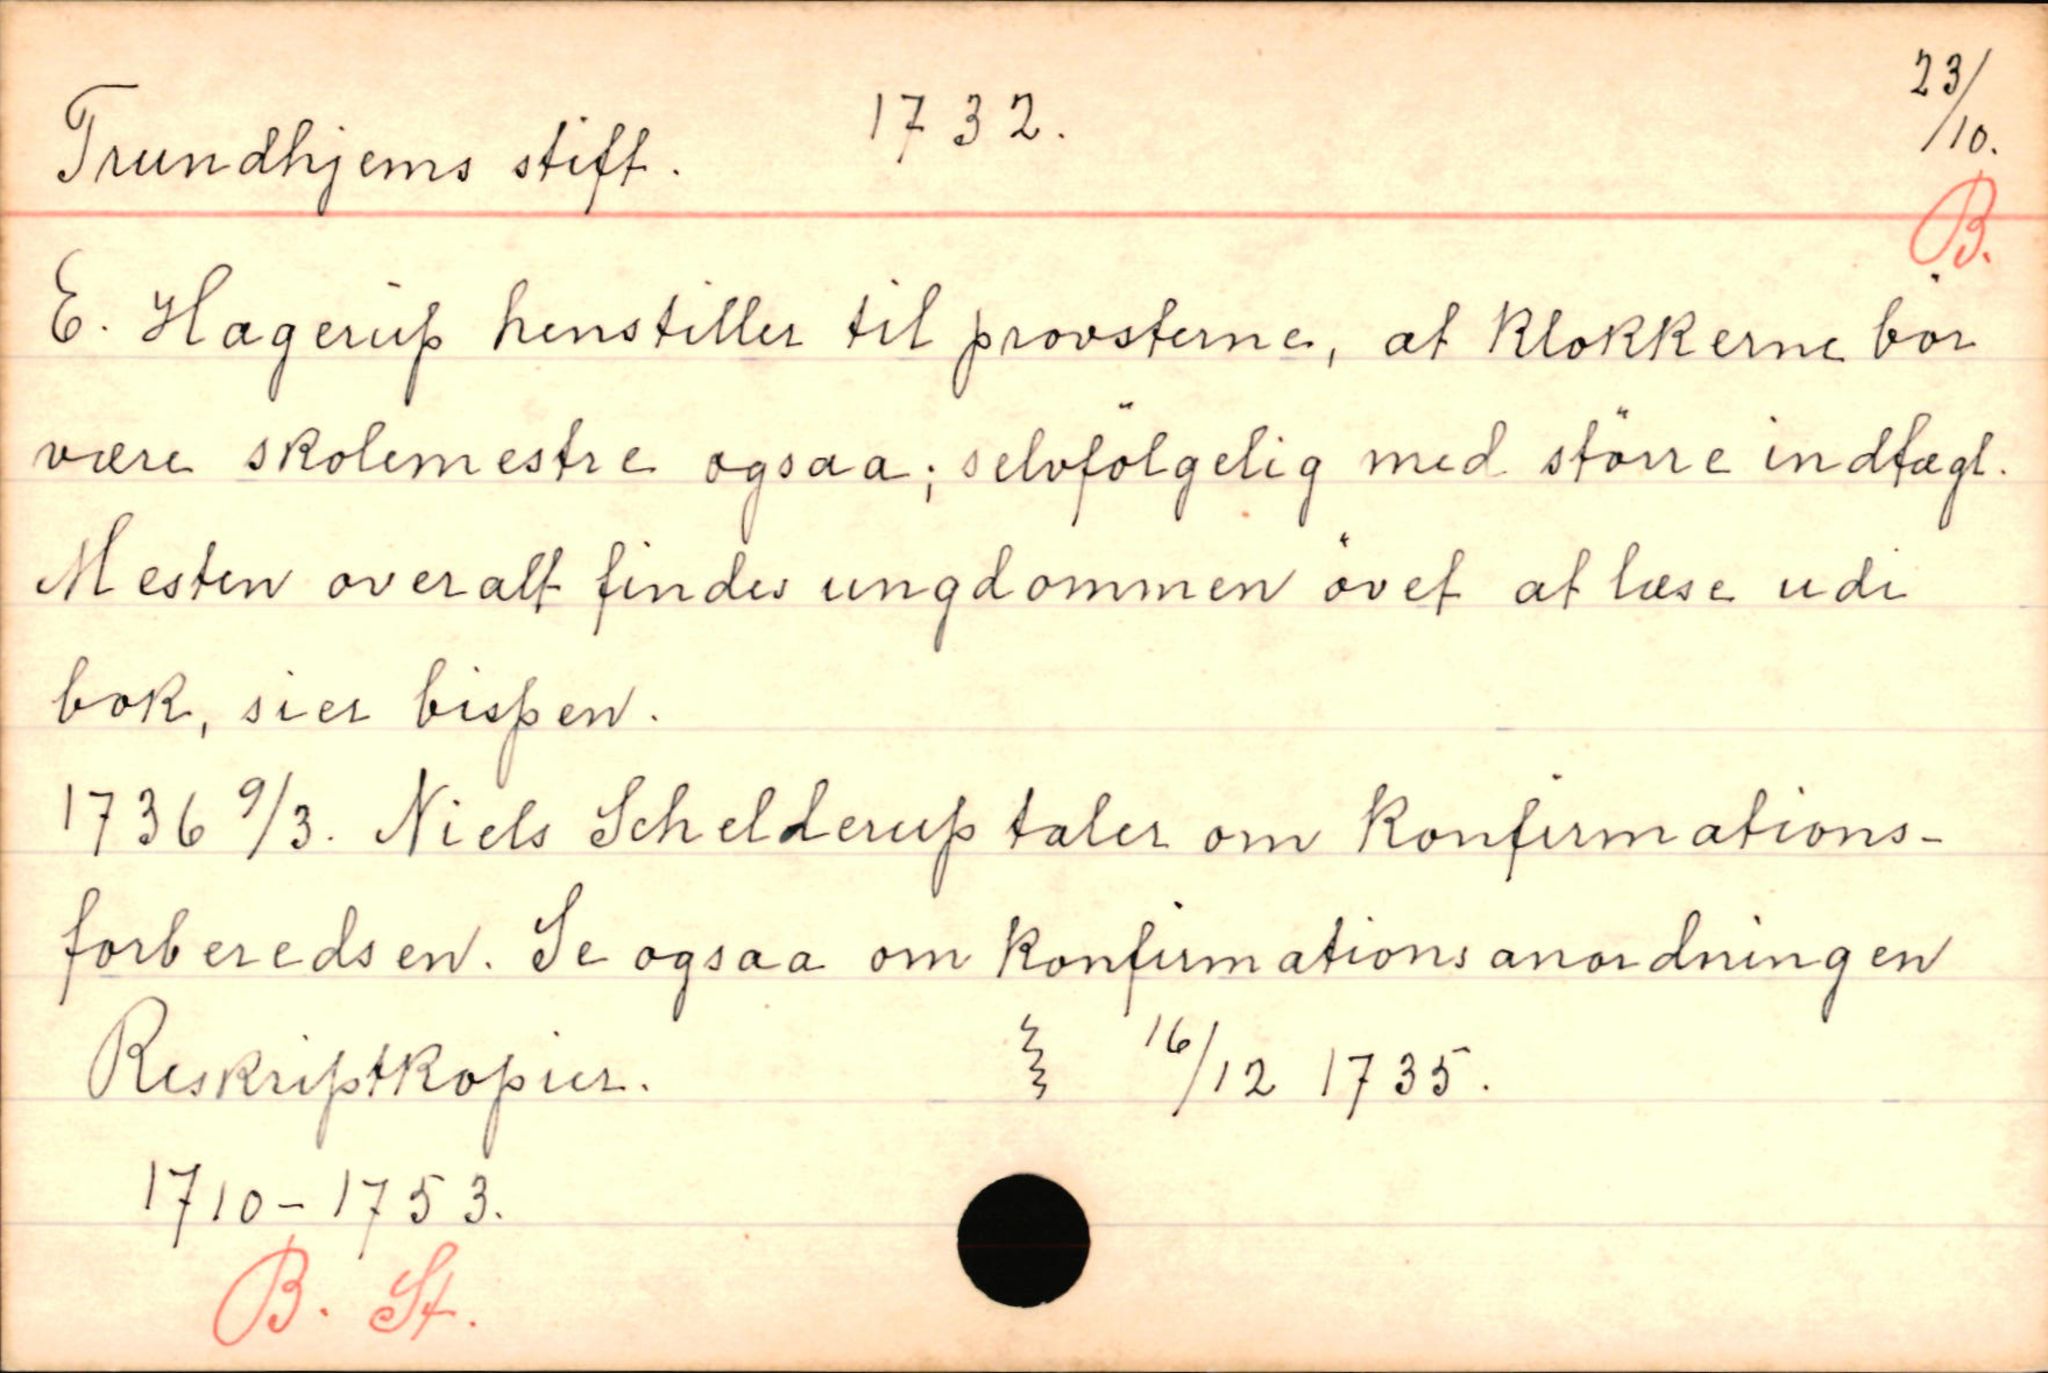 Trundhjems stift. 1732. 23/10.
B.
E. Hagerup henstiller til provsterne, at klokkerne bör
være skolemestre ogsaa; selvfölgelig med större indtægt.
Mesten overalt findes ungdommen övet at læse udi
bok, sier bispen.
1736 9/3. Niels Schelderup taler om konfirmations-
forberedsen. Se ogsaa om konfirmationsanordningen
Reskriptkopier. 16/12 1735.
1710-1753.
B. St.